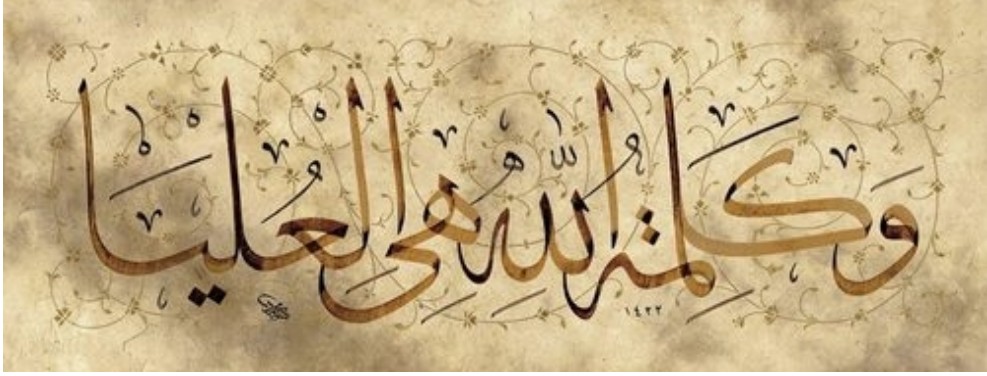 وَكَلِمَةُ اللّٰهِ هِيَ الْعُلْيَا
١٤٣٢